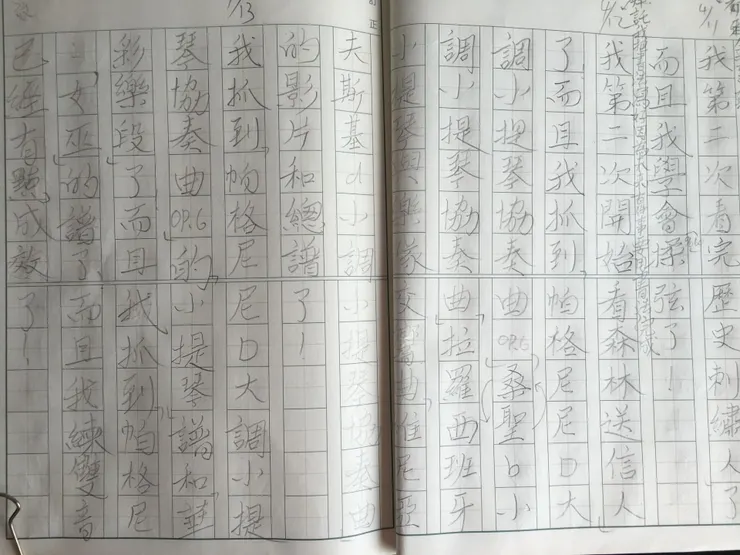 4/11
我第二次看完歷史刺繡人了
而且我學會揉弦了！
4/12
我第二次開始看森林送信人
了而且我抓到帕格尼尼D大
調小提琴協奏曲OP.6桑聖b小
調小提琴協奏曲拉羅西班牙
小提琴與樂隊交響曲維尼亞
夫斯基d小調小提琴協奏曲
的影片和總譜了！
4/13
我抓到帕格尼尼D大調小提
琴協奏曲OP.6的小提琴譜和華
彩樂段了而且我抓到帕格尼
尼女巫的譜了而且我練雙音
已經有點成效了！